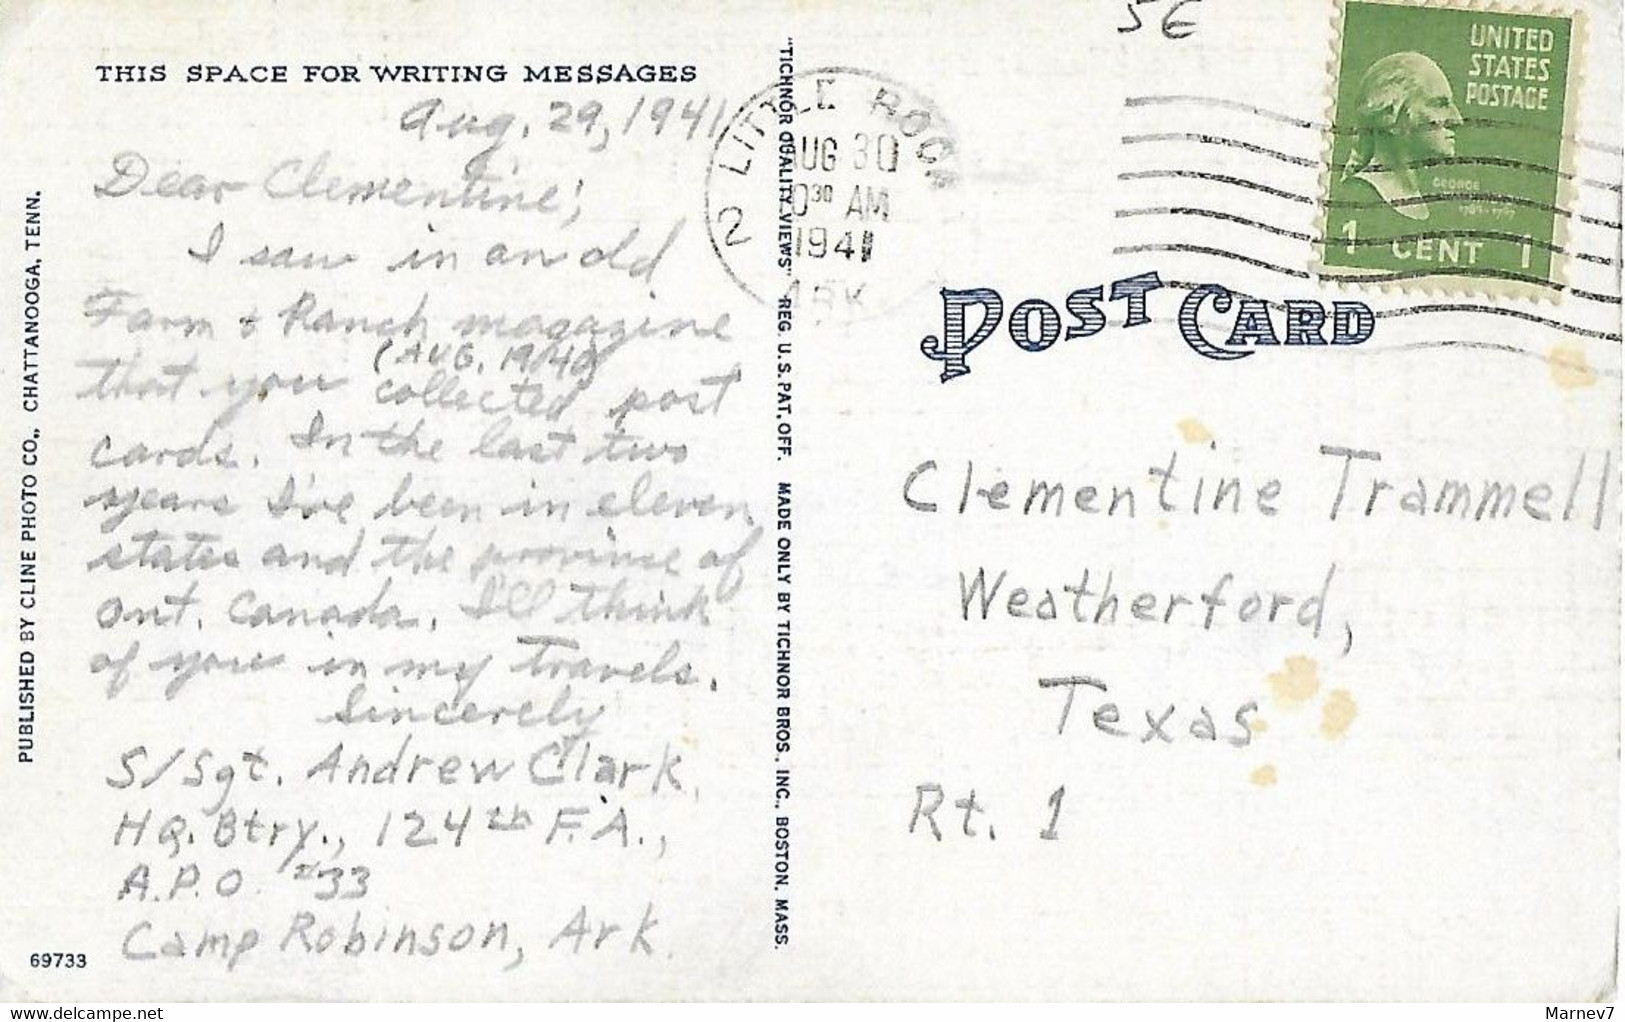 THIS SPACE FOR WRITING MESSAGES
Aug. 29, 1941
Dear Clementine;
I saw in an old
Farm + Ranch magazine
(AUG. 1940)
that you collected post
cards. In the last two
years I've been in eleven
states and the province of
Ont. Canada. I'll think
of you in my travels.
Sincerely
S/Sgt. Andrew Clark,
Hq. Btry., 124th F.A.,
A.P.O. #33
Camp Robinson, Ark.
69733
PUBLISHED BY CLINE PHOTO CO., CHATTANOOGA, TENN.
"TICHNOR QUALITY VIEWS" REG. U. S. PAT. OFF. MADE ONLY BY TICHNOR BROS., INC., BOSTON, MASS.
LITTLE ROCK
2
AUG 30
30 AM
1941
ARK
5€
UNITED
STATES
POSTAGE
GEORGE
WASHINGTON
1789-1797
1 CENT 1
POST CARD
Clementine Trammell
Weatherford,
Texas
Rt. 1
Marnev7
delcampe.net